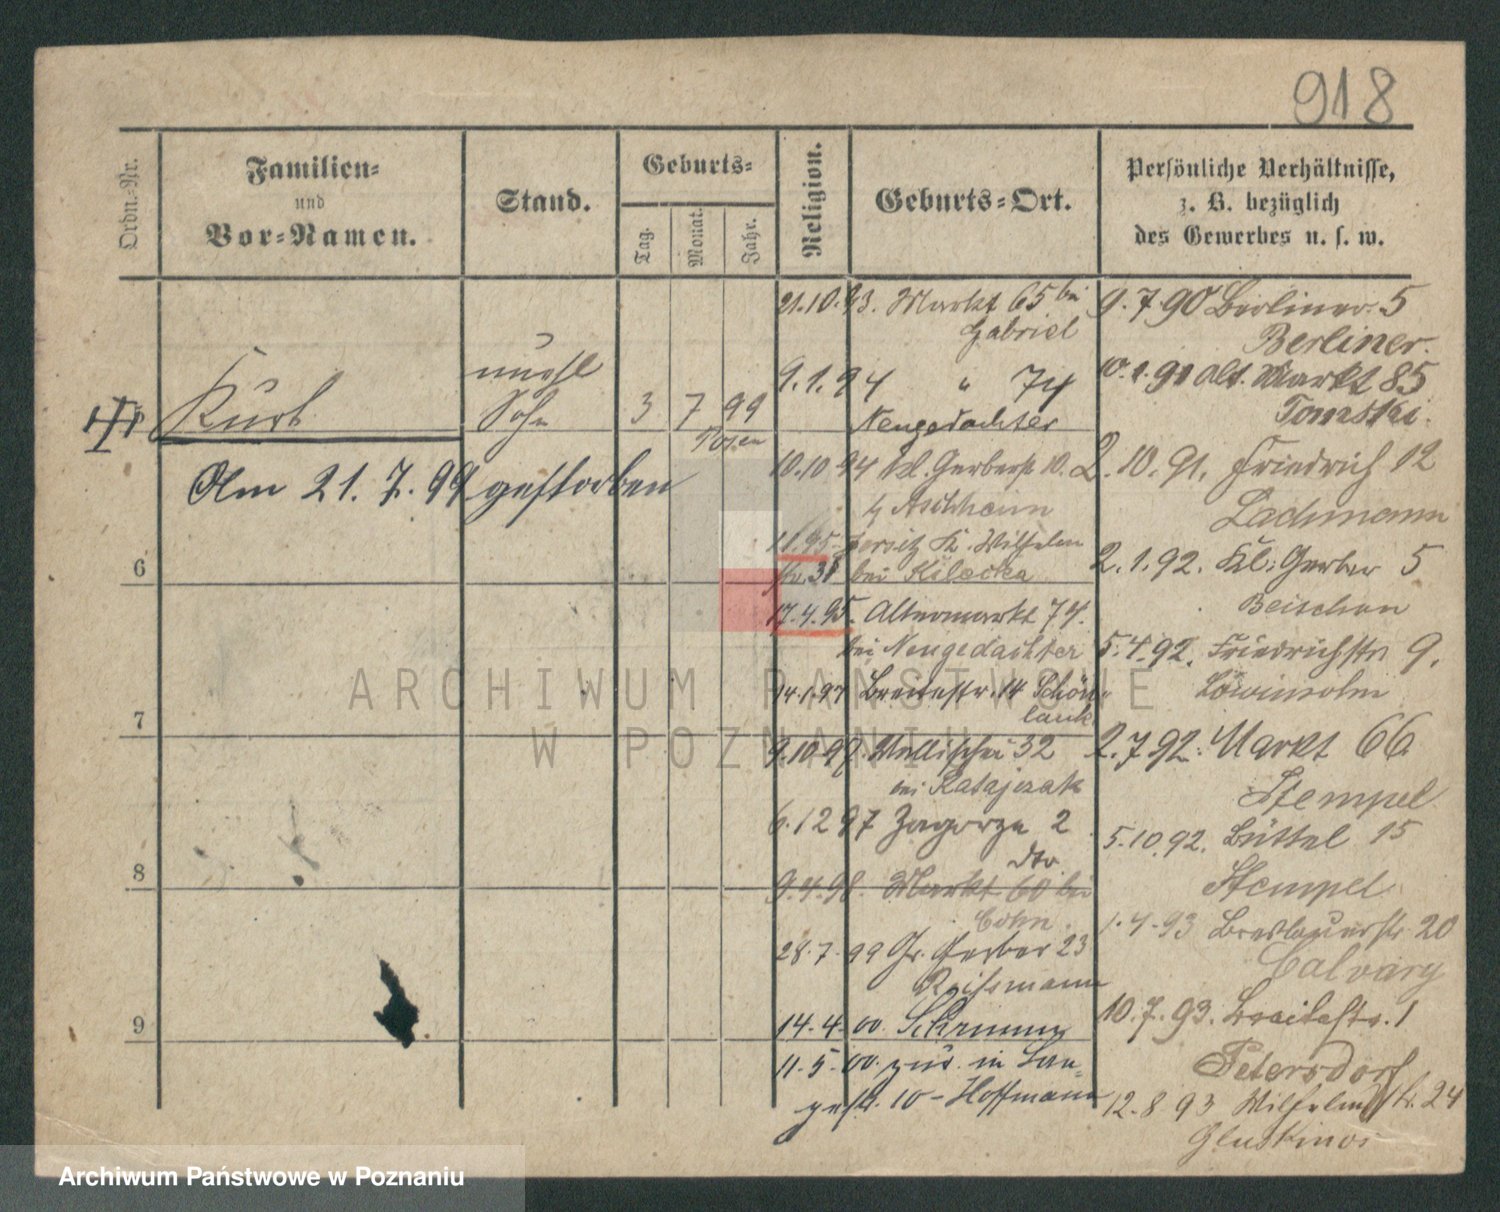 918
Ordn.-Nr.
Familien-
und
Vor-Namen.
Stand.
Geburts-
Tag.
Monat.
Jahr.
Religion.
Geburts-Ort.
Persönliche Verhältnisse,
z. B. bezüglich
des Gewerbes u. s. w.
Kurt
unehl
Sohn
3 7 99
Posen
Am 21. 7. 99 gestorben
6
7
8
9
21.10.93. Markt 65 bei
Gabriel
9.1.94 " 74
Neugedachter
10.10 94 kl. Gerberstr. 10.
Aschheim
11.95. Jersitz K. Wilhelm
str. 38 bei Kilecka
17.4.95. Altermarkt 74.
bei Neugedachter
14.1.97 Breitestr. 14 Schön-
lank
9.10.97. Wallischei 32
bei Ratajczak
6.12 97 Zagorze 2
9.4.98. Markt 60 bei
Cohn
28.7.99 Gr. Gerber 23
Reissmann
14.4.00. Schrimm
11.5.00. zur. in Lan-
gestr. 10 - Hoffmann
9.7.90 Berliner. 5
Berliner.
10.1.91 Alt. Markt 85
Tomski.
2.10.91. Friedrich 12
Lachmann
2.1.92. Kl. Gerber 5
Beischen
5.4.92. Friedrichstr 9.
Löwinsohn
2.7.92. Markt 66
Stempel
5.10.92. Büttel 15
Stempel
1.4.93 Breslauerstr. 20
Calvary
10.7.93. Breitestr. 1
Petersdorf
12.8 93 Wilhelmstr. 24
Gluskinos
ARCHIWUM PAŃSTWOWE
W POZNANIU
Archiwum Państwowe w Poznaniu